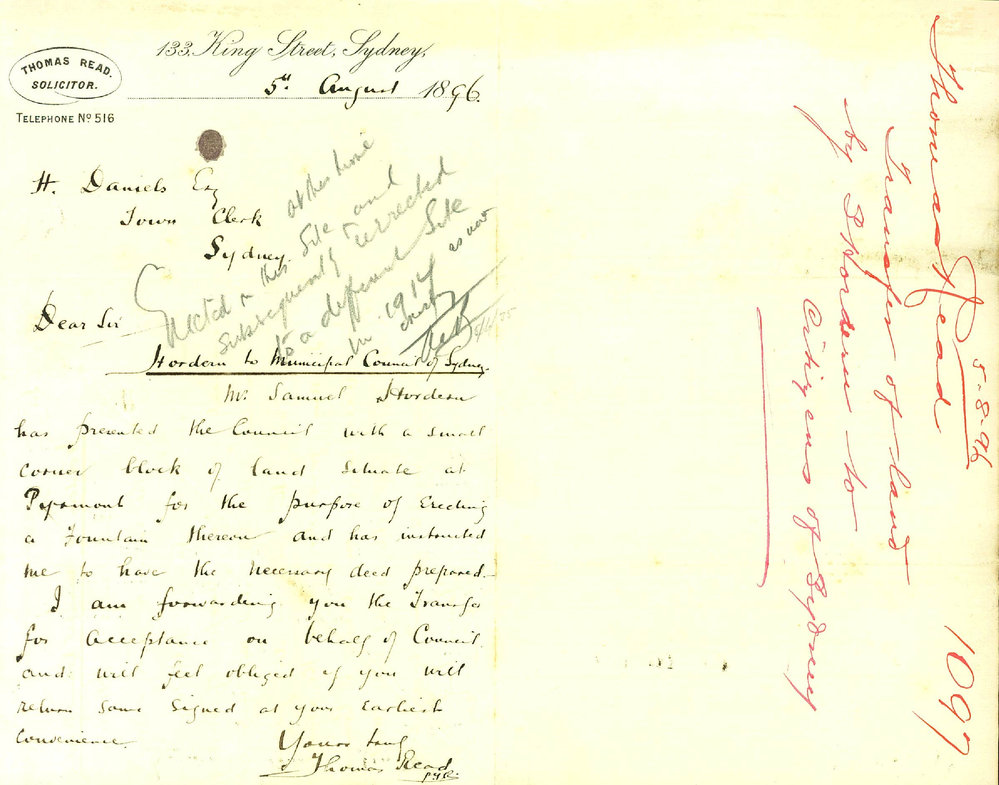 133, King Street, Sydney,
THOMAS READ.
SOLICITOR.
5th August 1896.
TELEPHONE No 516
H. Daniels Esq
Town Clerk
Sydney.
at this time
Erected on this Site and
Subsequently reerected
to a different Site
in 1917 as now
5/6/35
Dear Sir
Hordern to Municipal Council of Sydney.
Mr. Samuel Hordern
has presented the Council with a small
corner block of land situate at
Pyrmont for the purpose of Erecting
a Fountain thereon and has instructed
me to have the necessary deed prepared.
I am forwarding you the Transfer
for acceptance on behalf of Council
and will feel obliged if you will
return same signed at your Earliest
Convenience.
Yours truly
Thomas Read
Thomas Read
5-8-96
Transfer of land
by S Hordern to
Citizens of Sydney
1097